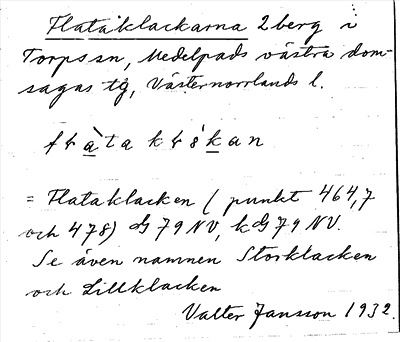 Flataklackarna 2 berg i
Torps sn, Medelpads västra dom-
sagas tg, Västernorrlands l.
= Flataklacken (punkt 464,7
och 478) dG 79 NV, kdG 79 NV.
Se även namnen Storklacken
och Lillklacken
Valter Jansson 1932.